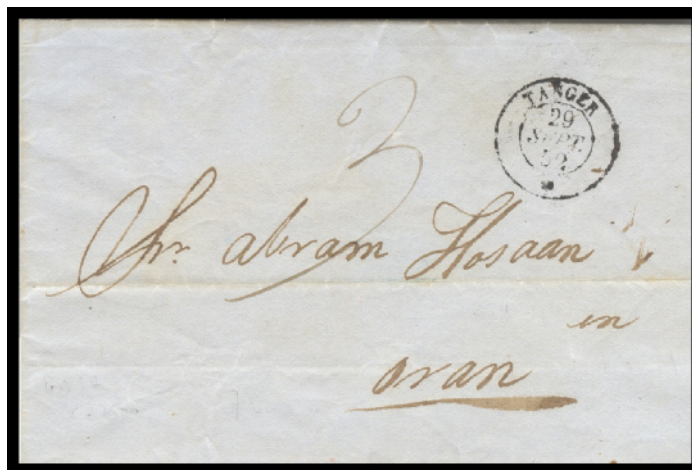 TANGER
29
SEPT.
52
3
Sr. abram Hosaan
en
oran